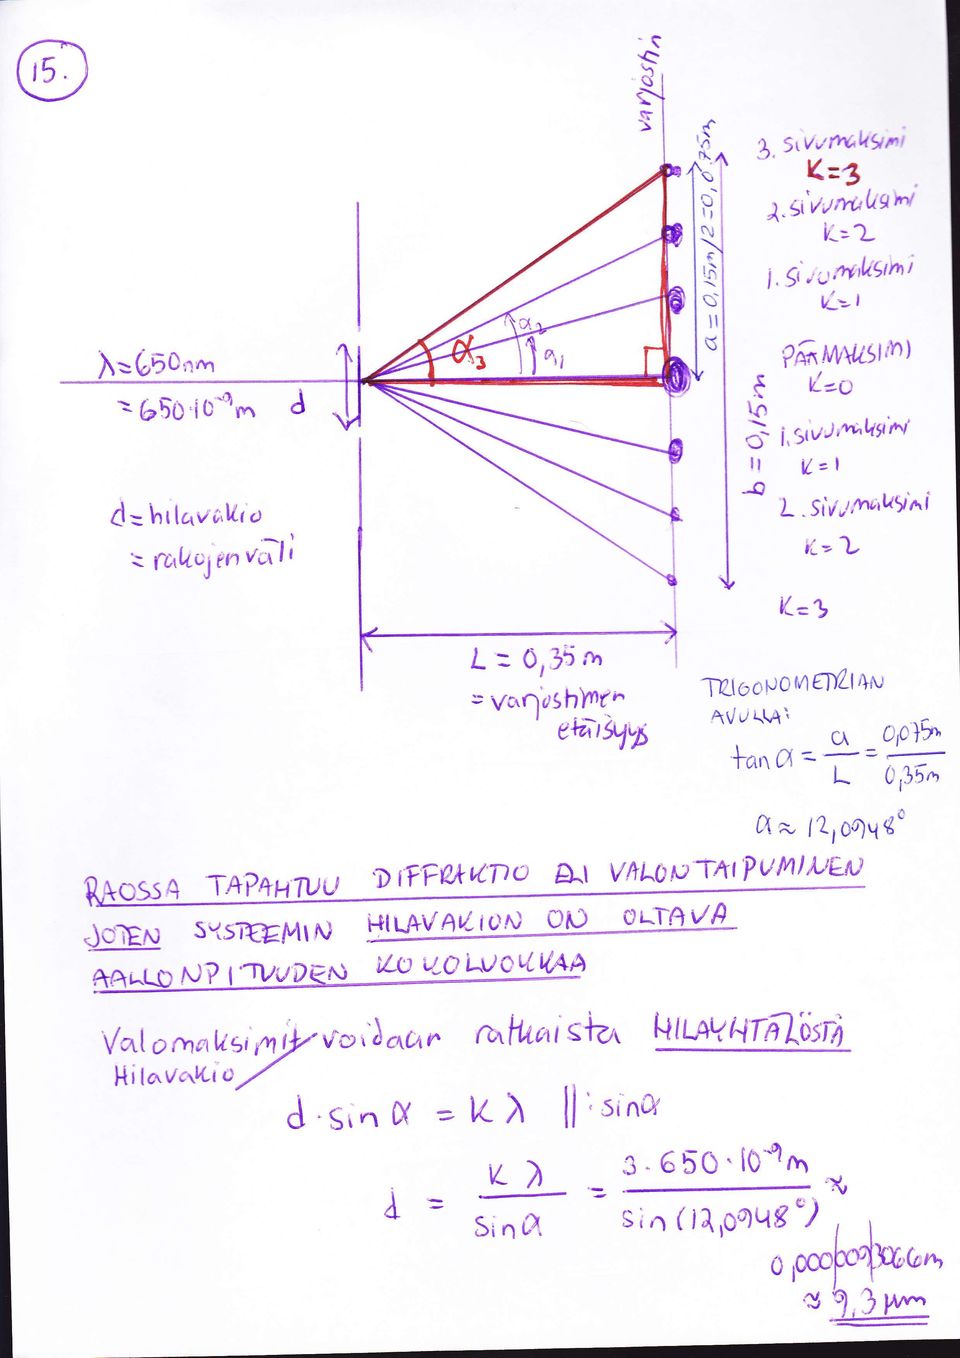 15.
varjostin
a = 0,15m/2 = 0,075m
b = 0,15m
3. sivumaksimi
K=3
2. sivumaksimi
K=2
1. sivumaksimi
K=1
PÄÄMAKSIMI
K=0
1. sivumaksimi
K=1
2. sivumaksimi
K=2
K=3
α₃
α₂
α₁
λ=650nm
=650·10⁻⁹m
d
d = hilavakio
= rakojen väli
L = 0,35 m
= varjostimen
etäisyys
TRIGONOMETRIAN
AVULLA:
tan α = a/L = 0,075m/0,35m
α ≈ 12,0948°
RAOSSA TAPAHTUU DIFFRAKTIO ELI VALON TAIPUMINEN
JOTEN SYSTEEMIN HILAVAKION ON OLTAVA
AALLONPITUUDEN KOKOLUOKKAA
Valomaksimit voidaan ratkaista HILAYHTÄLÖSTÄ
Hilavakio
d · sin α = K λ ||: sinα
d = Kλ/sinα = 3·650·10⁻⁹m/sin(12,0948°) ≈
0,000|009|3066m
≈ 9,3 μm